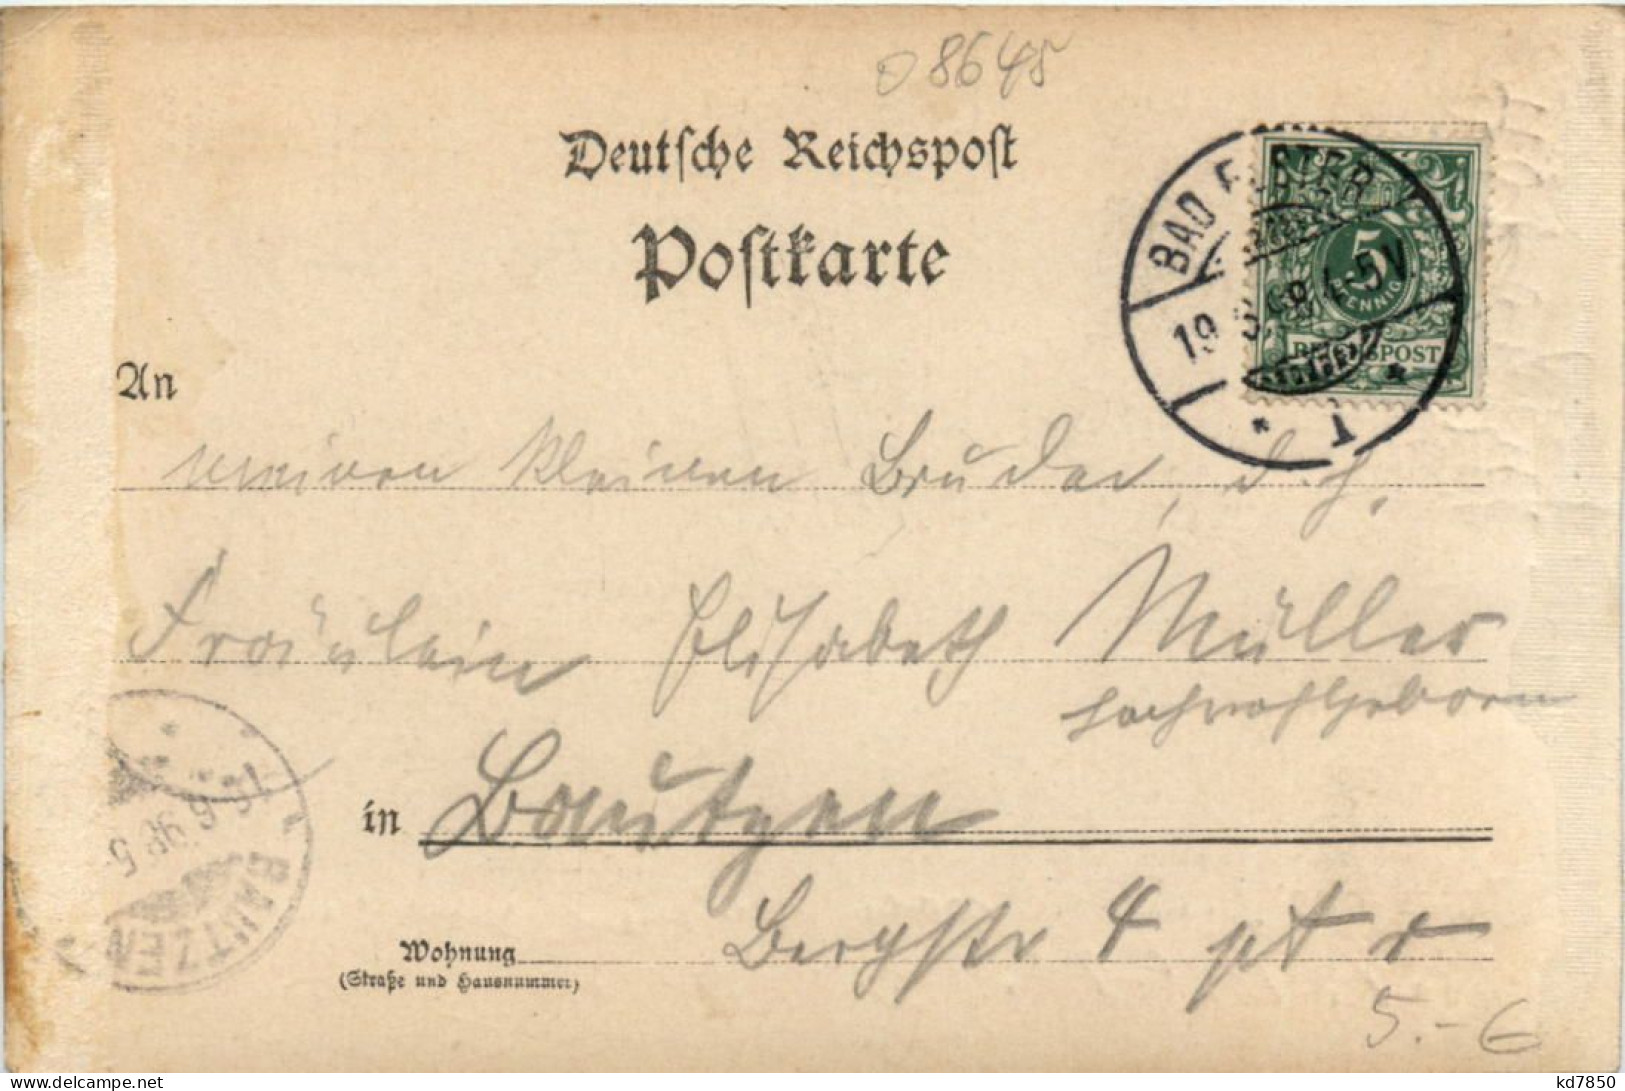 08645
Deutsche Reichspost
Postkarte
BAD ELSTER
19 5 98 4-5 V
5
PFENNIG
REICHSPOST
An
meinen kleinen Bruder, d. h.
Fräulein Elisabeth Müller
Hochwohlgeboren
in Bautzen
Wohnung Bergstr 4 pt r
(Straße und Hausnummer)
BAUTZEN
5.-6
kd7850